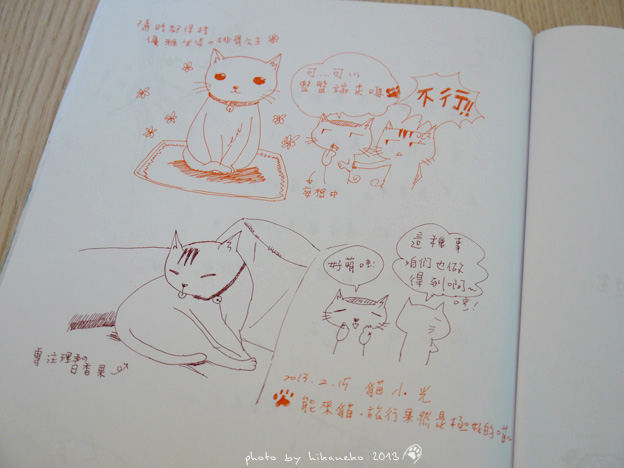 隨時都保持
優雅坐姿の柑橘公主
可...可以
整籃端走嗎
不行!!
妄想中
好萌唷!
這種事
咱们也做
得到啊~
哼!
專注理毛の
百香果
2013.2.15 貓小光
能來貓.旅行果然是極好的
photo by hikaneko 2013